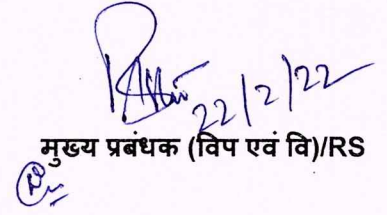 22/2/22
मुख्य प्रबंधक (विप एवं वि)/RS